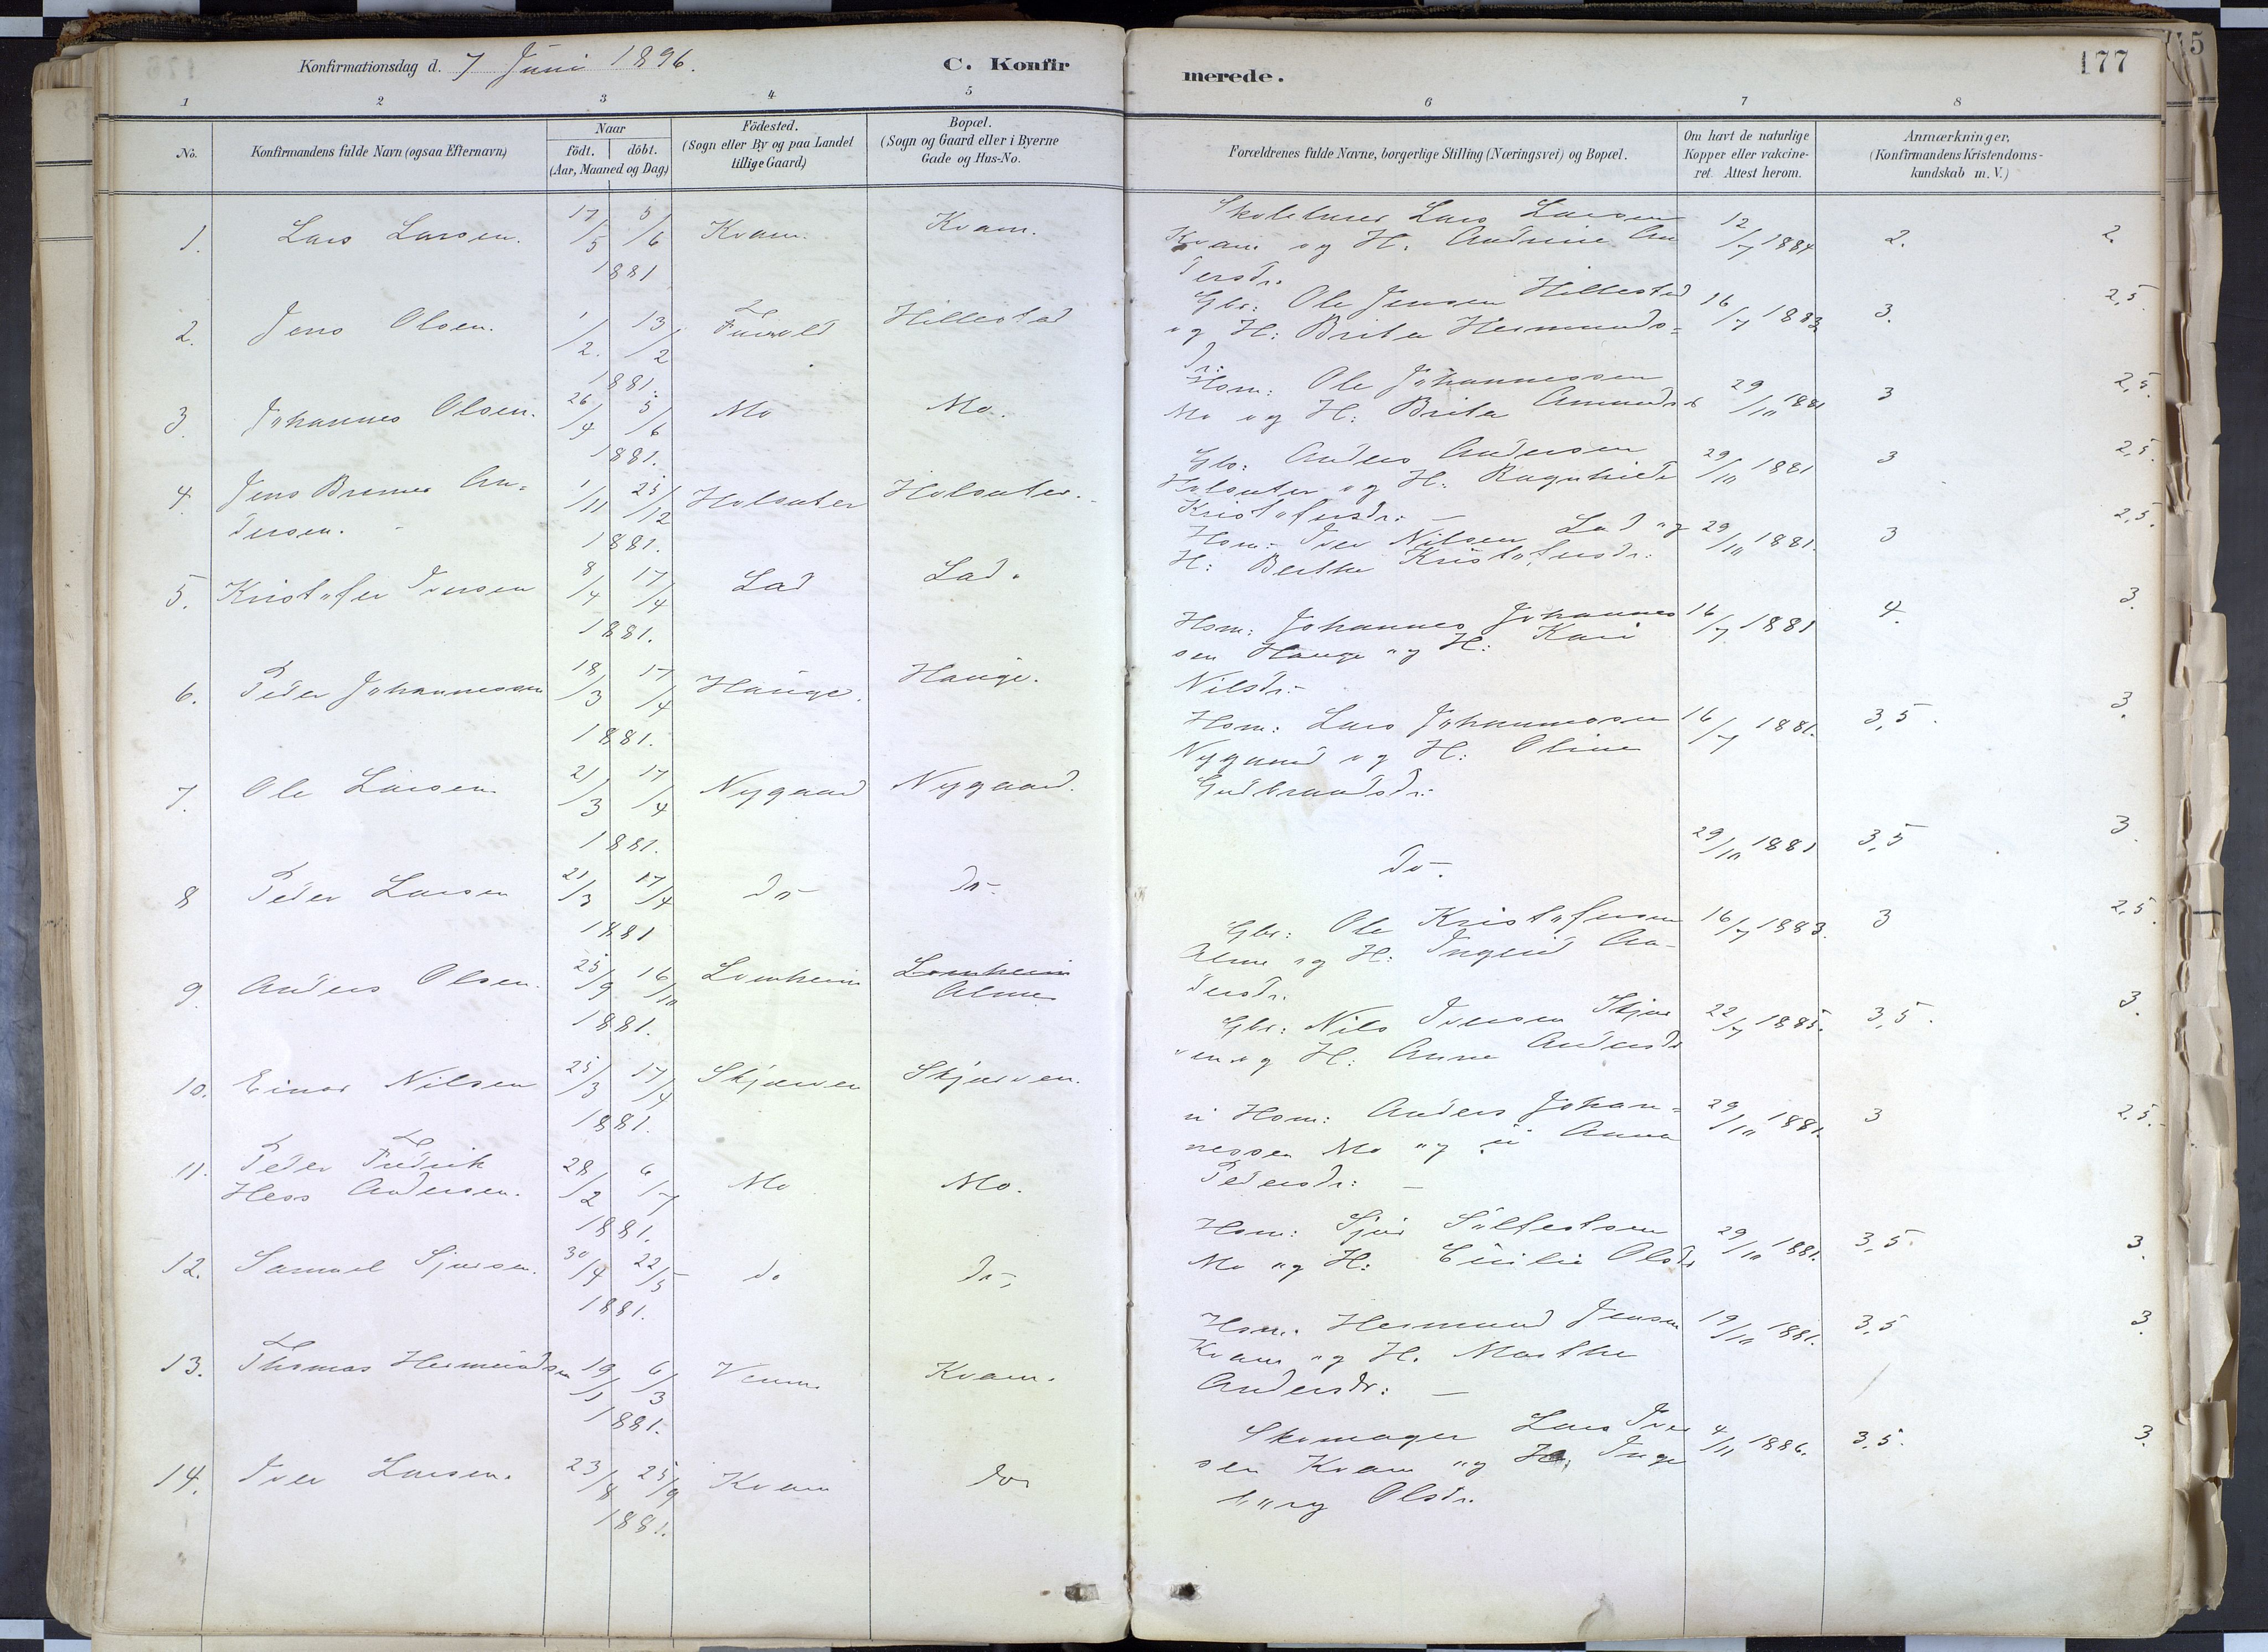 Konfirmationsdag d. 7 Juni 1896. C. Konfirmerede. 177
1 2 3 4 5 6 7 8
No.
Konfirmandens fulde Navn (ogsaa Efternavn)
Naar
födt. döbt.
(Aar, Maaned og Dag)
Födested.
(Sogn eller By og paa Landet
tillige Gaard)
Bopæl.
(Sogn og Gaard eller i Byerne
Gade og Hus-No.
Forældrenes fulde Navne, borgerlige Stilling (Næringsvei) og Bopæl.
Om havt de naturlige
Kopper eller vakcine-
ret. Attest herom.
Anmærkninger,
(Konfirmandens Kristendoms-
kundskab m. V.)
1. Lars Larsen. 17/5 5/6 Kvam. Kvam.
1881
Lars Larsen 12/7 1884 2. 2.
Kvam og H. Andrine An
dersdr.
2. Jens Olsen. 1/2. 13/2 Hillestad
1881.
Gbr: Ole Jensen Hillestad 16/7 1883 3. 2,5.
og H: Brita Hermunds=
dr:
3. Johannes Olsen. 26/4 5/6 Mo Mo.
1881.
Hsm: Ole Johannessen 29/10 1881 3 2,5.
Mo og H: Brita Amundsd
4. Jens Bremer An=
dersen. 1/11 25/12 Holsæter Holsæter.
1881.
Gbr: Anders Andersen 29/10 1881 3 2,5.
Holsæter og H: Ragnhild
Kristofersdr:
5. Kristofer Iversen 8/4 17/4 Lad Lad.
1881.
Hsm: Iver Nilsen Lad og 29/10 1881. 3 2,5.
H: Berthe Kristofersdr:
6. Peder Johannessen 18/3 17/4 Hauge. Hauge.
1881.
Hsm: Johannes Johannes 16/7 1881 4. 3.
sen Hauge og H: Kari
Nilsdr:
7. Ole Larsen. 21/3 17/4 Nygaard Nygaard.
1881.
Hsm: Lars Johannessen 16/7 1881. 3,5. 3.
Nygaard og H: Oline
Gudbrandsdr:
8 Peder Larsen 21/3 17/4 do do
1881
do. 29/10 1881 3,5 3.
9. Anders Olsen. 25/9 16/10 Lomheim Lomheim
Alme
1881.
Gbr: Ole Kristofersen 16/7 1883. 3 2,5.
Alme og H: Ingrid An-
dersdr.
10. Einar Nilsen 25/3 17/4 Skjerven Skjerven.
1881.
Gbr: Nils Iversen Skjer 22/7 1885. 3,5. 3.
ven og H: Anna Andersdr
11. Peder Fredrik
Hess Andersen. 28/2 6/7 Mo Mo.
1881.
u Hsm: Anders Johan= 29/10 1881. 3 2,5.
nessen Mo og u Anna
Pedersdr:
12. Samuel Sjursen. 30/4 22/5 do do
1881.
Hsm: Sjur Sølfestsen 29/10 1881. 3,5. 3.
Mo og H: Cecilie Olsdr
13. Thomas Hermundsen 19/1 6/3 Kvam.
1881.
Hsm. Hermund Jensen 19/10 1881. 3,5 3.
Kvam og H. Marthe
Andersdr:
14. Iver Larsen. 23/8 25/9 Kvam do
1881.
Skomager Lars Iver 4/11 1886. 3,5. 3.
sen Kvam og H: Inge
borg Olsdr.